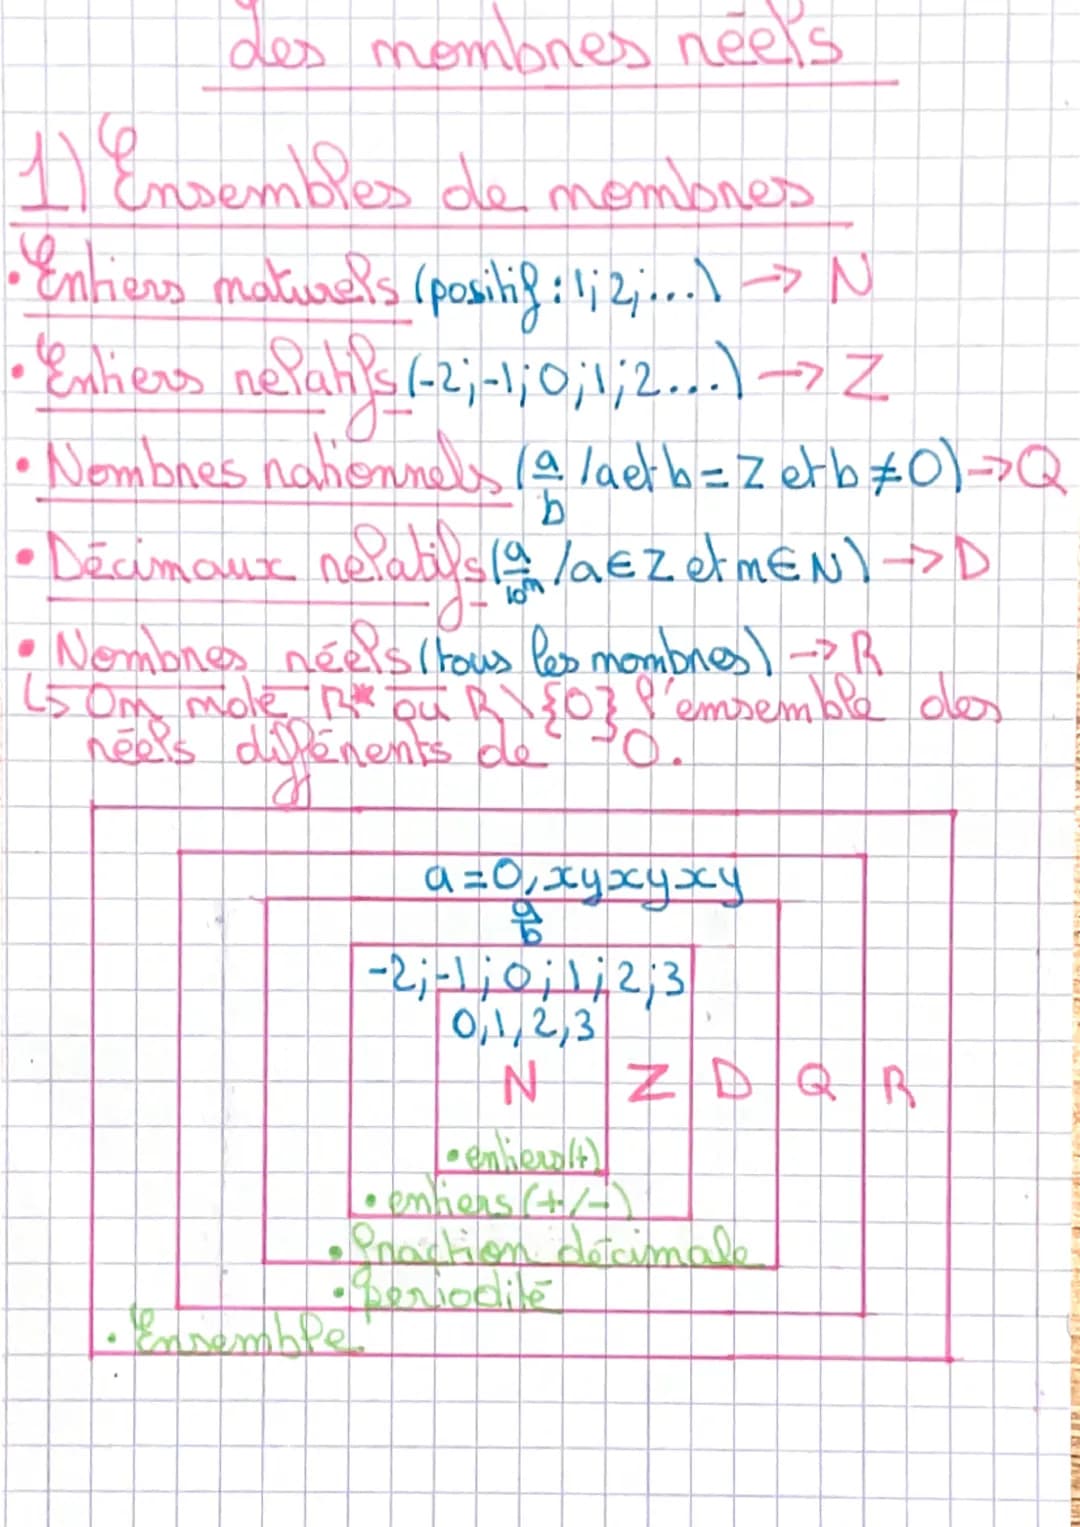 des nombres réels
1) Ensembles de nombres
• Entiers naturels (positif : 1; 2; ...) → N
• Entiers relatifs (-2; -1; 0; 1; 2...) → Z
• Nombres rationnels (a/b /a et b = Z et b ≠ 0) → Q
• Décimaux relatifs (a/10^n /a ∈ Z et n ∈ N) → D
• Nombres réels (tous les nombres) → R
↳ On note R* ou R\{0} l'ensemble des
réels différents de 0.
a = 0,xyxyxy
a/b
-2; -1; 0; 1; 2; 3
0, 1, 2, 3
N Z D Q R
• entiers (+)
• entiers (+/-)
• fraction décimale
• périodité
• Ensemble